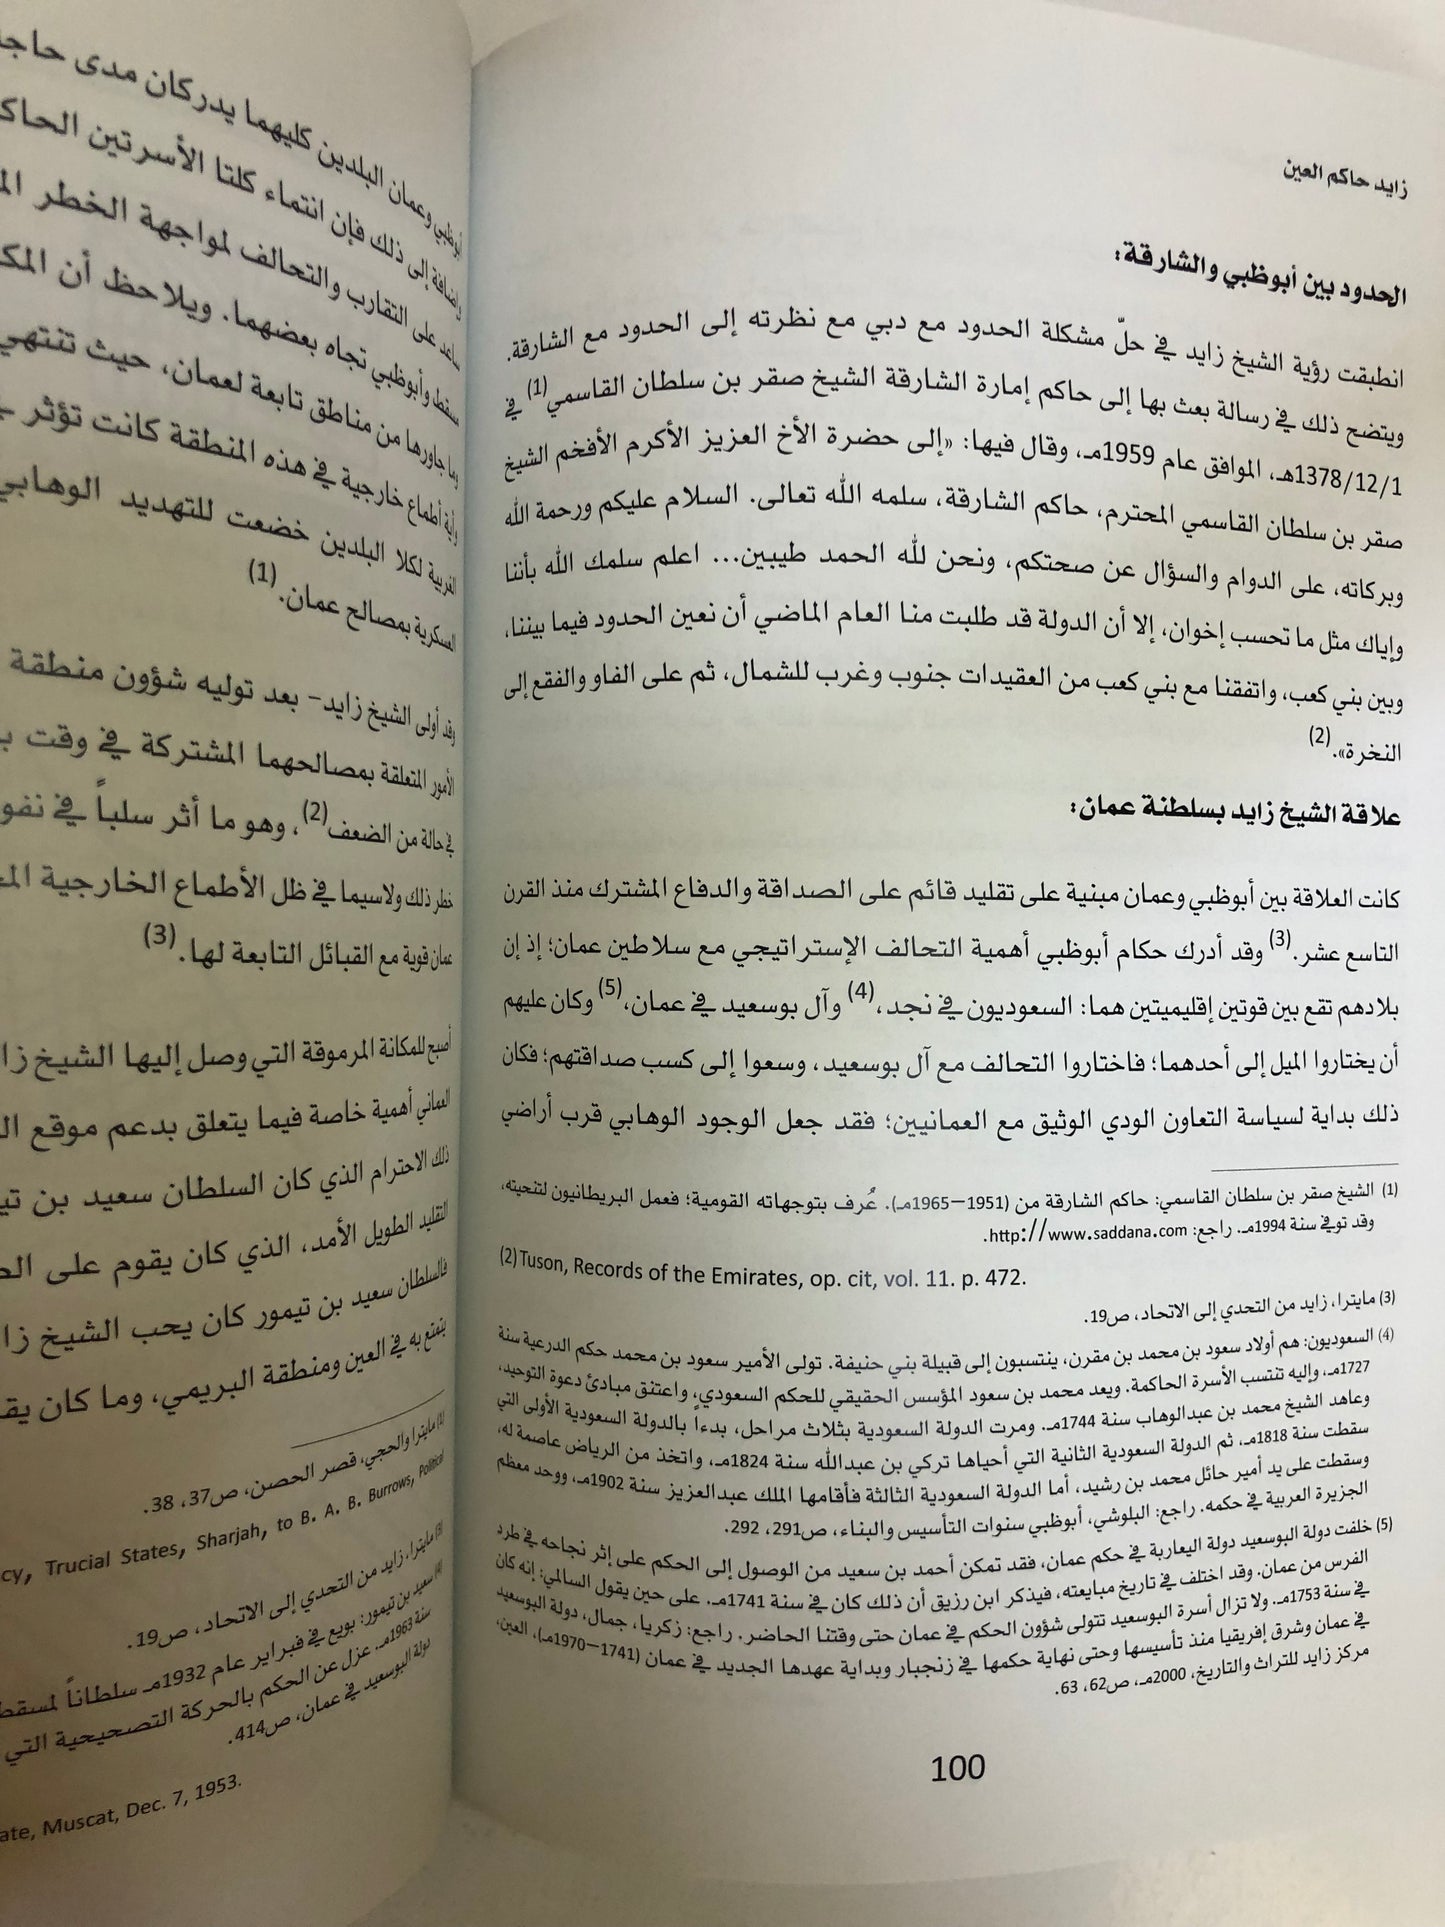 زايد حاكم العين
الحدود بين أبوظبي والشارقة:
انطبقت رؤية الشيخ زايد في حلّ مشكلة الحدود مع دبي مع نظرته إلى الحدود مع الشارقة.
ويتضح ذلك في رسالة بعث بها إلى حاكم إمارة الشارقة الشيخ صقر بن سلطان القاسمي(1) في
1378/12/1هـ، الموافق عام 1959مـ، وقال فيها: «إلى حضرة الأخ العزيز الأكرم الأفخم الشيخ
صقر بن سلطان القاسمي المحترم، حاكم الشارقة، سلمه الله تعالى. السلام عليكم ورحمة الله
وبركاته، على الدوام والسؤال عن صحتكم، ونحن لله الحمد طيبين... اعلم سلمك الله بأننا
وإياك مثل ما تحسب إخوان، إلا أن الدولة قد طلبت منا العام الماضي أن نعين الحدود فيما بيننا،
وبين بني كعب، واتفقنا مع بني كعب من العقيدات جنوب وغرب للشمال، ثم على الفاو والفقع إلى
النخرة».(2)
علاقة الشيخ زايد بسلطنة عمان:
كانت العلاقة بين أبوظبي وعمان مبنية على تقليد قائم على الصداقة والدفاع المشترك منذ القرن
التاسع عشر.(3) وقد أدرك حكام أبوظبي أهمية التحالف الإستراتيجي مع سلاطين عمان؛ إذ إن
بلادهم تقع بين قوتين إقليميتين هما: السعوديون في نجد،(4) وآل بوسعيد في عمان،(5) وكان عليهم
أن يختاروا الميل إلى أحدهما؛ فاختاروا التحالف مع آل بوسعيد، وسعوا إلى كسب صداقتهم؛ فكان
ذلك بداية لسياسة التعاون الودي الوثيق مع العمانيين؛ فقد جعل الوجود الوهابي قرب أراضي
(1) الشيخ صقر بن سلطان القاسمي: حاكم الشارقة من (1951–1965مـ). عُرف بتوجهاته القومية؛ فعمل البريطانيون لتنحيته،
وقد توفي سنة 1994مـ. راجع: http://www.saddana.com.
(2) Tuson, Records of the Emirates, op. cit, vol. 11. p. 472.
(3) مايترا، زايد من التحدي إلى الاتحاد، ص19.
(4) السعوديون: هم أولاد سعود بن محمد بن مقرن، ينتسبون إلى قبيلة بني حنيفة. تولى الأمير سعود بن محمد حكم الدرعية سنة
1727مـ، وإليه تنتسب الأسرة الحاكمة. ويعد محمد بن سعود المؤسس الحقيقي للحكم السعودي، واعتنق مبادئ دعوة التوحيد،
وعاهد الشيخ محمد بن عبدالوهاب سنة 1744مـ. ومرت الدولة السعودية بثلاث مراحل، بدءاً بالدولة السعودية الأولى التي
سقطت سنة 1818مـ، ثم الدولة السعودية الثانية التي أحياها تركي بن عبدالله سنة 1824مـ، واتخذ من الرياض عاصمة له،
وسقطت على يد أمير حائل محمد بن رشيد، أما الدولة السعودية الثالثة فأقامها الملك عبدالعزيز سنة 1902مـ، ووحد معظم
الجزيرة العربية في حكمه. راجع: البلوشي، أبوظبي سنوات التأسيس والبناء، ص291، 292.
(5) خلفت دولة البوسعيد دولة اليعاربة في حكم عمان، فقد تمكن أحمد بن سعيد من الوصول إلى الحكم على إثر نجاحه في طرد
الفرس من عمان. وقد اختلف في تاريخ مبايعته، فيذكر ابن رزيق أن ذلك كان في سنة 1741مـ. على حين يقول السالمي: إنه كان
في سنة 1753مـ. ولا تزال أسرة البوسعيد تتولى شؤون الحكم في عمان حتى وقتنا الحاضر. راجع: زكريا، جمال، دولة البوسعيد
في عمان وشرق إفريقيا منذ تأسيسها وحتى نهاية حكمها في زنجبار وبداية عهدها الجديد في عمان (1741–1970مـ)، العين،
مركز زايد للتراث والتاريخ، 2000مـ، ص62، 63.
100
أبوظبي وعمان البلدين كليهما يدركان مدى
وإضافة إلى ذلك فإن انتماء كلتا الأسرتين
ساعد على التقارب والتحالف لمواجهة الخطر
مسقط وأبوظبي تجاه بعضهما. ويلاحظ أن
وما جاورها من مناطق تابعة لعمان، حيث تنتهي
وأية أطماع خارجية في هذه المنطقة كانت تؤثر
الغربية لكلا البلدين خضعت للتهديد الوهابي
العسكرية بمصالح عمان.(1)
وقد أولى الشيخ زايد– بعد توليه شؤون منطقة
الأمور المتعلقة بمصالحهما المشتركة في وقت
في حالة من الضعف(2)، وهو ما أثر سلباً في
خطر ذلك ولاسيما في ظل الأطماع الخارجية
عمان قوية مع القبائل التابعة لها.(3)
أصبح للمكانة المرموقة التي وصل إليها الشيخ
العماني أهمية خاصة فيما يتعلق بدعم موقع
ذلك الاحترام الذي كان السلطان سعيد بن
التقليد الطويل الأمد، الذي كان يقوم على
فالسلطان سعيد بن تيمور كان يحب الشيخ
يتمتع به في العين ومنطقة البريمي، وما كان
(1) مايترا والحجي، قصر الحصن، ص37، 38.
Trucial States, Sharjah, to B. A. B. Burrows, Political
(3) مايترا، زايد من التحدي إلى الاتحاد، ص19.
(4) سعيد بن تيمور: بويع في فبراير عام 1932مـ سلطاناً
سنة 1963مـ. عزل عن الحكم بالحركة التصحيحية التي
دولة البوسعيد في عمان، ص414.
Muscat, Dec. 7, 1953.